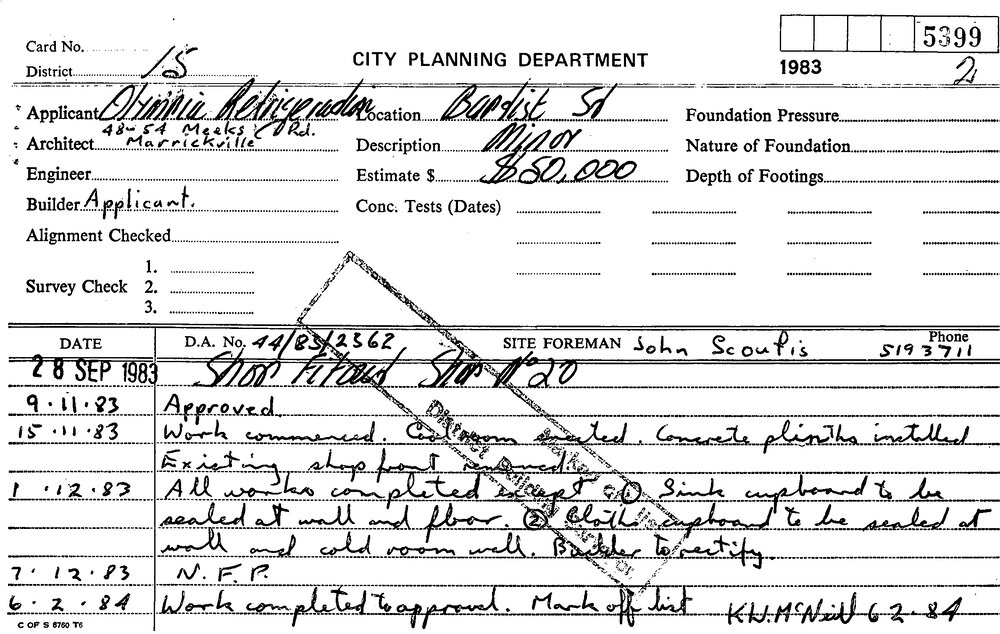 5399
Card No.
CITY PLANNING DEPARTMENT
District 15
1983 2
Applicant Olympia Refrigeration Location Baptist St Foundation Pressure
48-54 Meeks Rd.
Architect Marrickville Description Minor Nature of Foundation
Engineer Estimate $ $50,000 Depth of Footings
Builder Applicant. Conc. Tests (Dates)
Alignment Checked
1.
Survey Check 2.
3.
DATE D.A. No. 44/83/2362 SITE FOREMAN John Scoufis Phone 5193711
28 SEP 1983 Shop Fitout Shop No 20
9.11.83 Approved.
15.11.83 Work commenced. Coolroom erected. Concrete plinths installed
Existing shop front removed
1.12.83 All works completed except ① Sink cupboard to be
sealed at wall and floor. ② Cloths cupboard to be sealed at
wall and cold room wall. Builder to rectify.
7.12.83 N.F.P.
6.2.84 Work completed to approval. Mark off list K.W. McNeill 6 2.84
C OF S 6760 T6
Marked off list
District Building Surveyor